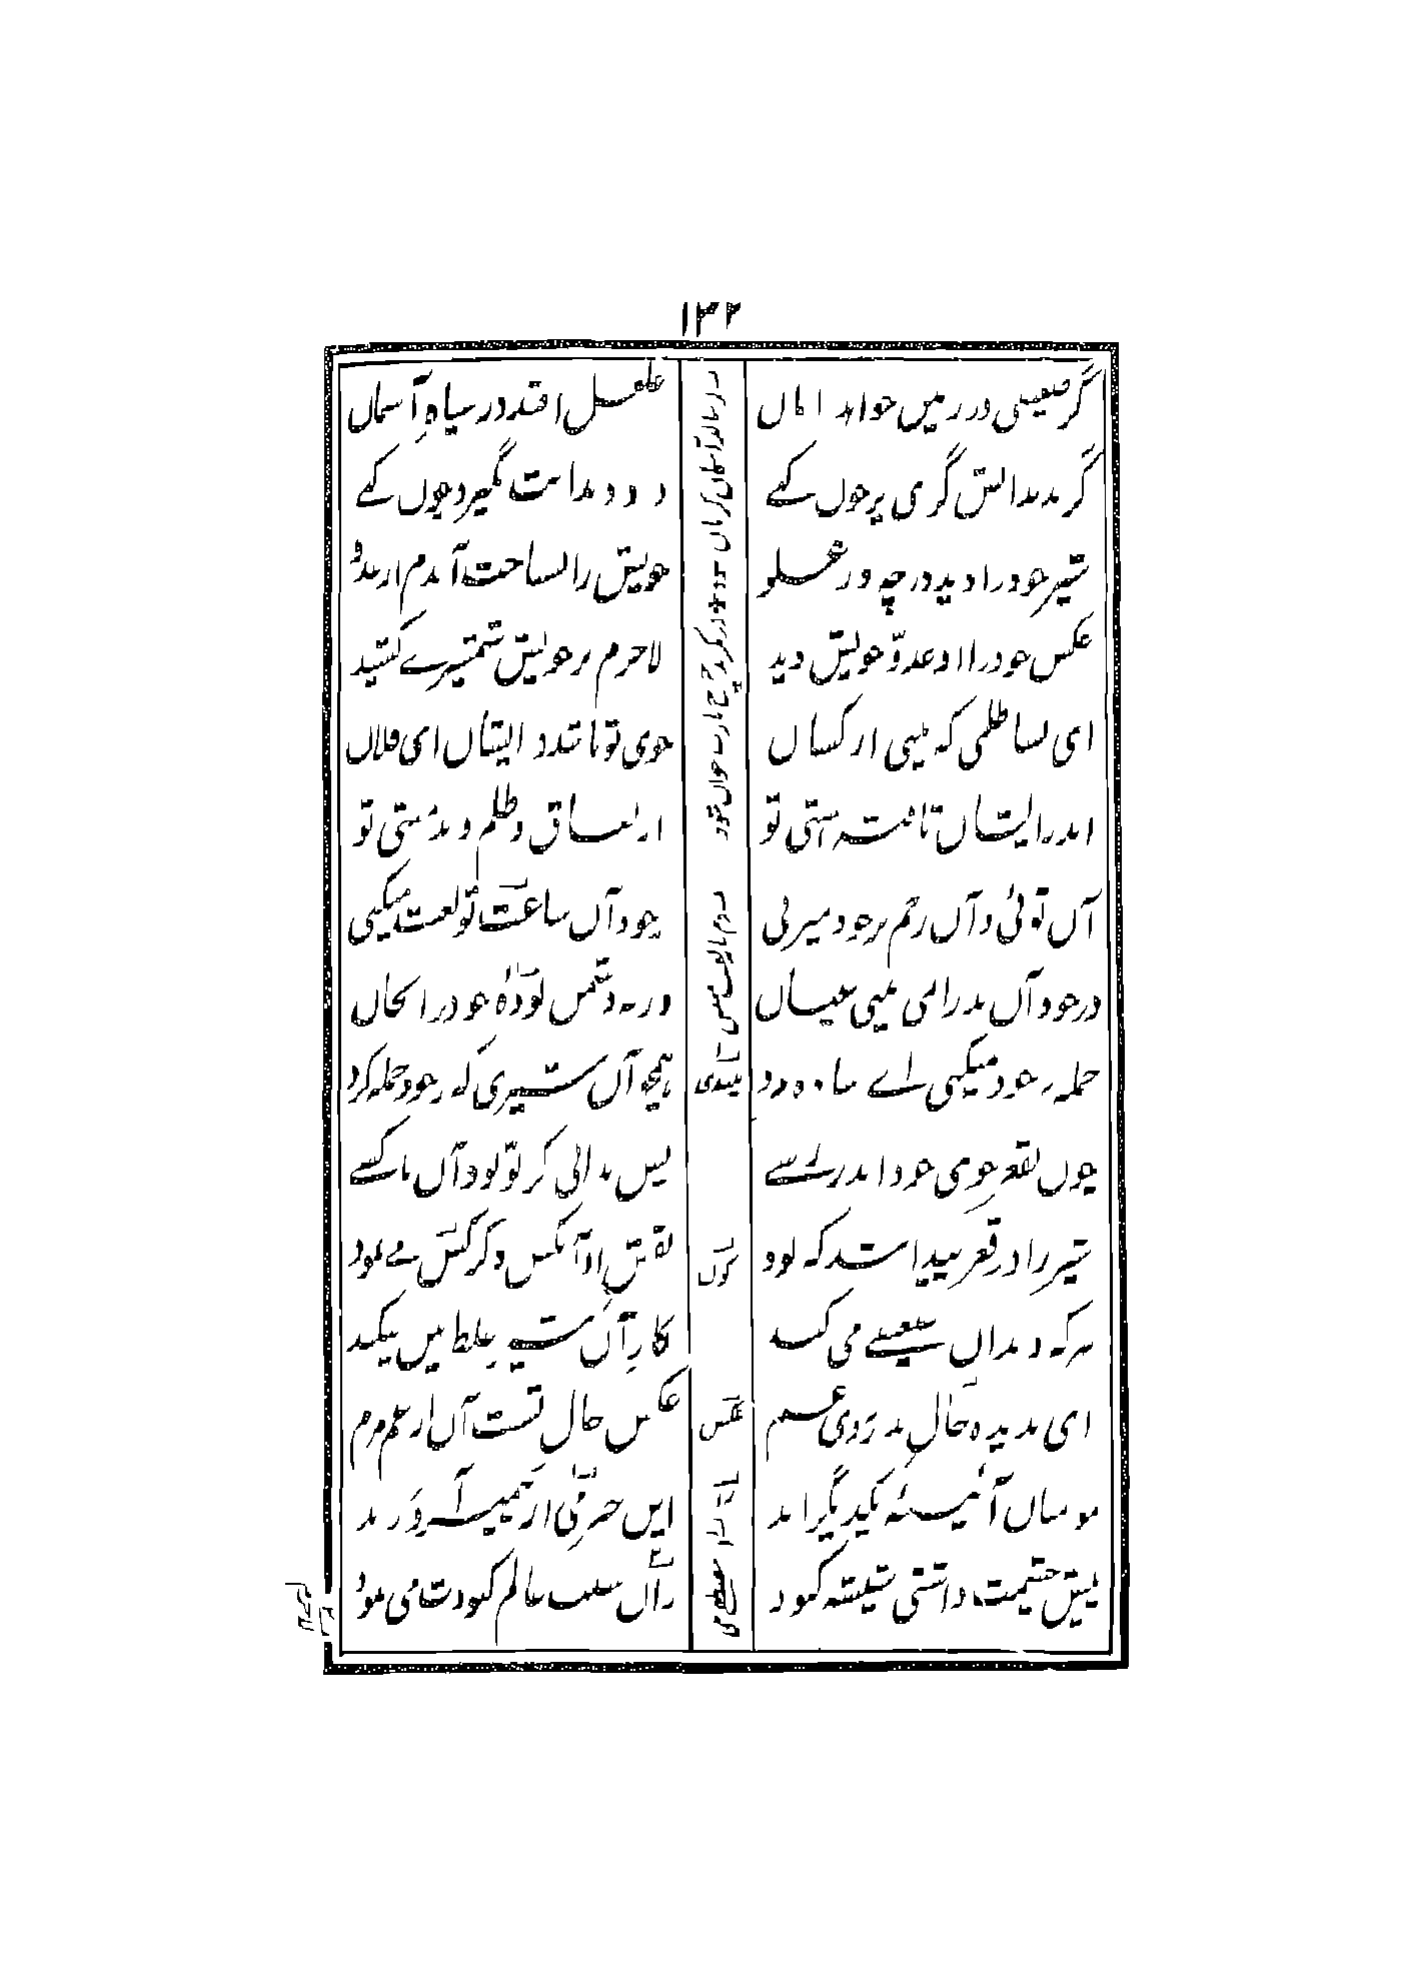 ۱۳۲
گر ضعیفی در زمین خواهد اماں غلغل افتد در سپاهِ آسماں
گر بدندانش گزی پرخوں کنے درد دندانت بگیرد چوں کنے
شیر خود را دید در چه وز غلو خویش را نشناخت آندم از عدو
عکس خود را او عدوّ خویش دید لاجرم بر خویش شمشیرے کشید
ای بسا ظلمی که بینی از کساں خوی تو باشد در ایشاں ای فلاں
اندر ایشاں تافته هستی تو از نفاق و ظلم و بدمستی تو
آں توئی و آں زخم بر خود میزنی بر خود آں ساعت تو لعنت میکنی
در خود آں بد را نمی بینی عیاں ورنه دشمن بودۀ خود را بجاں
حمله بر خود میکنی اے ساده مرد همچو آں شیری که بر خود حمله کرد
چوں بقعر خوی خود اندر رسے پس بدانی کز تو بود آں ناکسے
شیر را در قعر پیدا شد که بود نقش او آنکس دگر کش مے نمود
هر که دندان ضعیفے می کند کارِ آں شیرِ غلط بیں میکند
ای بدیده خال بد بر روی عم عکس خال تست آں از عم مرم
مومناں آئینه یکدیگراند ایں خبر می از پیمبر آورند
پیش چشمت داشتی شیشه کبود زاں سبب عالم کبودت می نمود